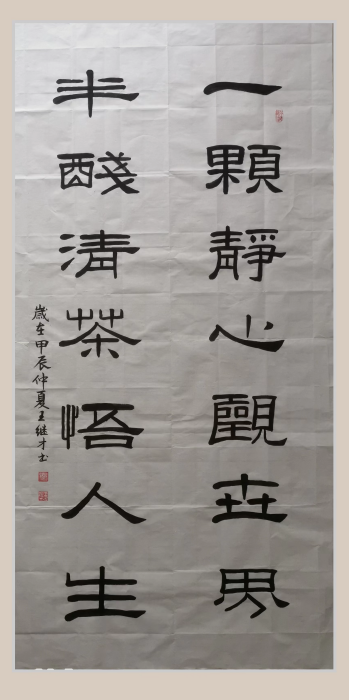 一顆靜心觀世界
半醆清茶悟人生
歲在甲辰仲夏王继才书